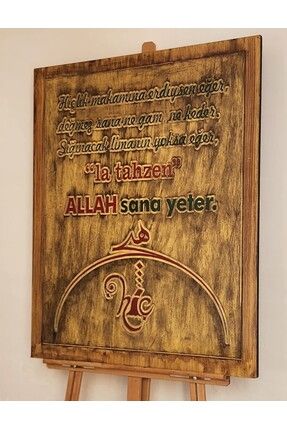 Hiçlik makamına erdiysen eğer,
değmez sana ne gam, ne keder.
Sığınacak limanın yoksa eğer,
"la tahzen"
ALLAH sana yeter.
هو
hiç